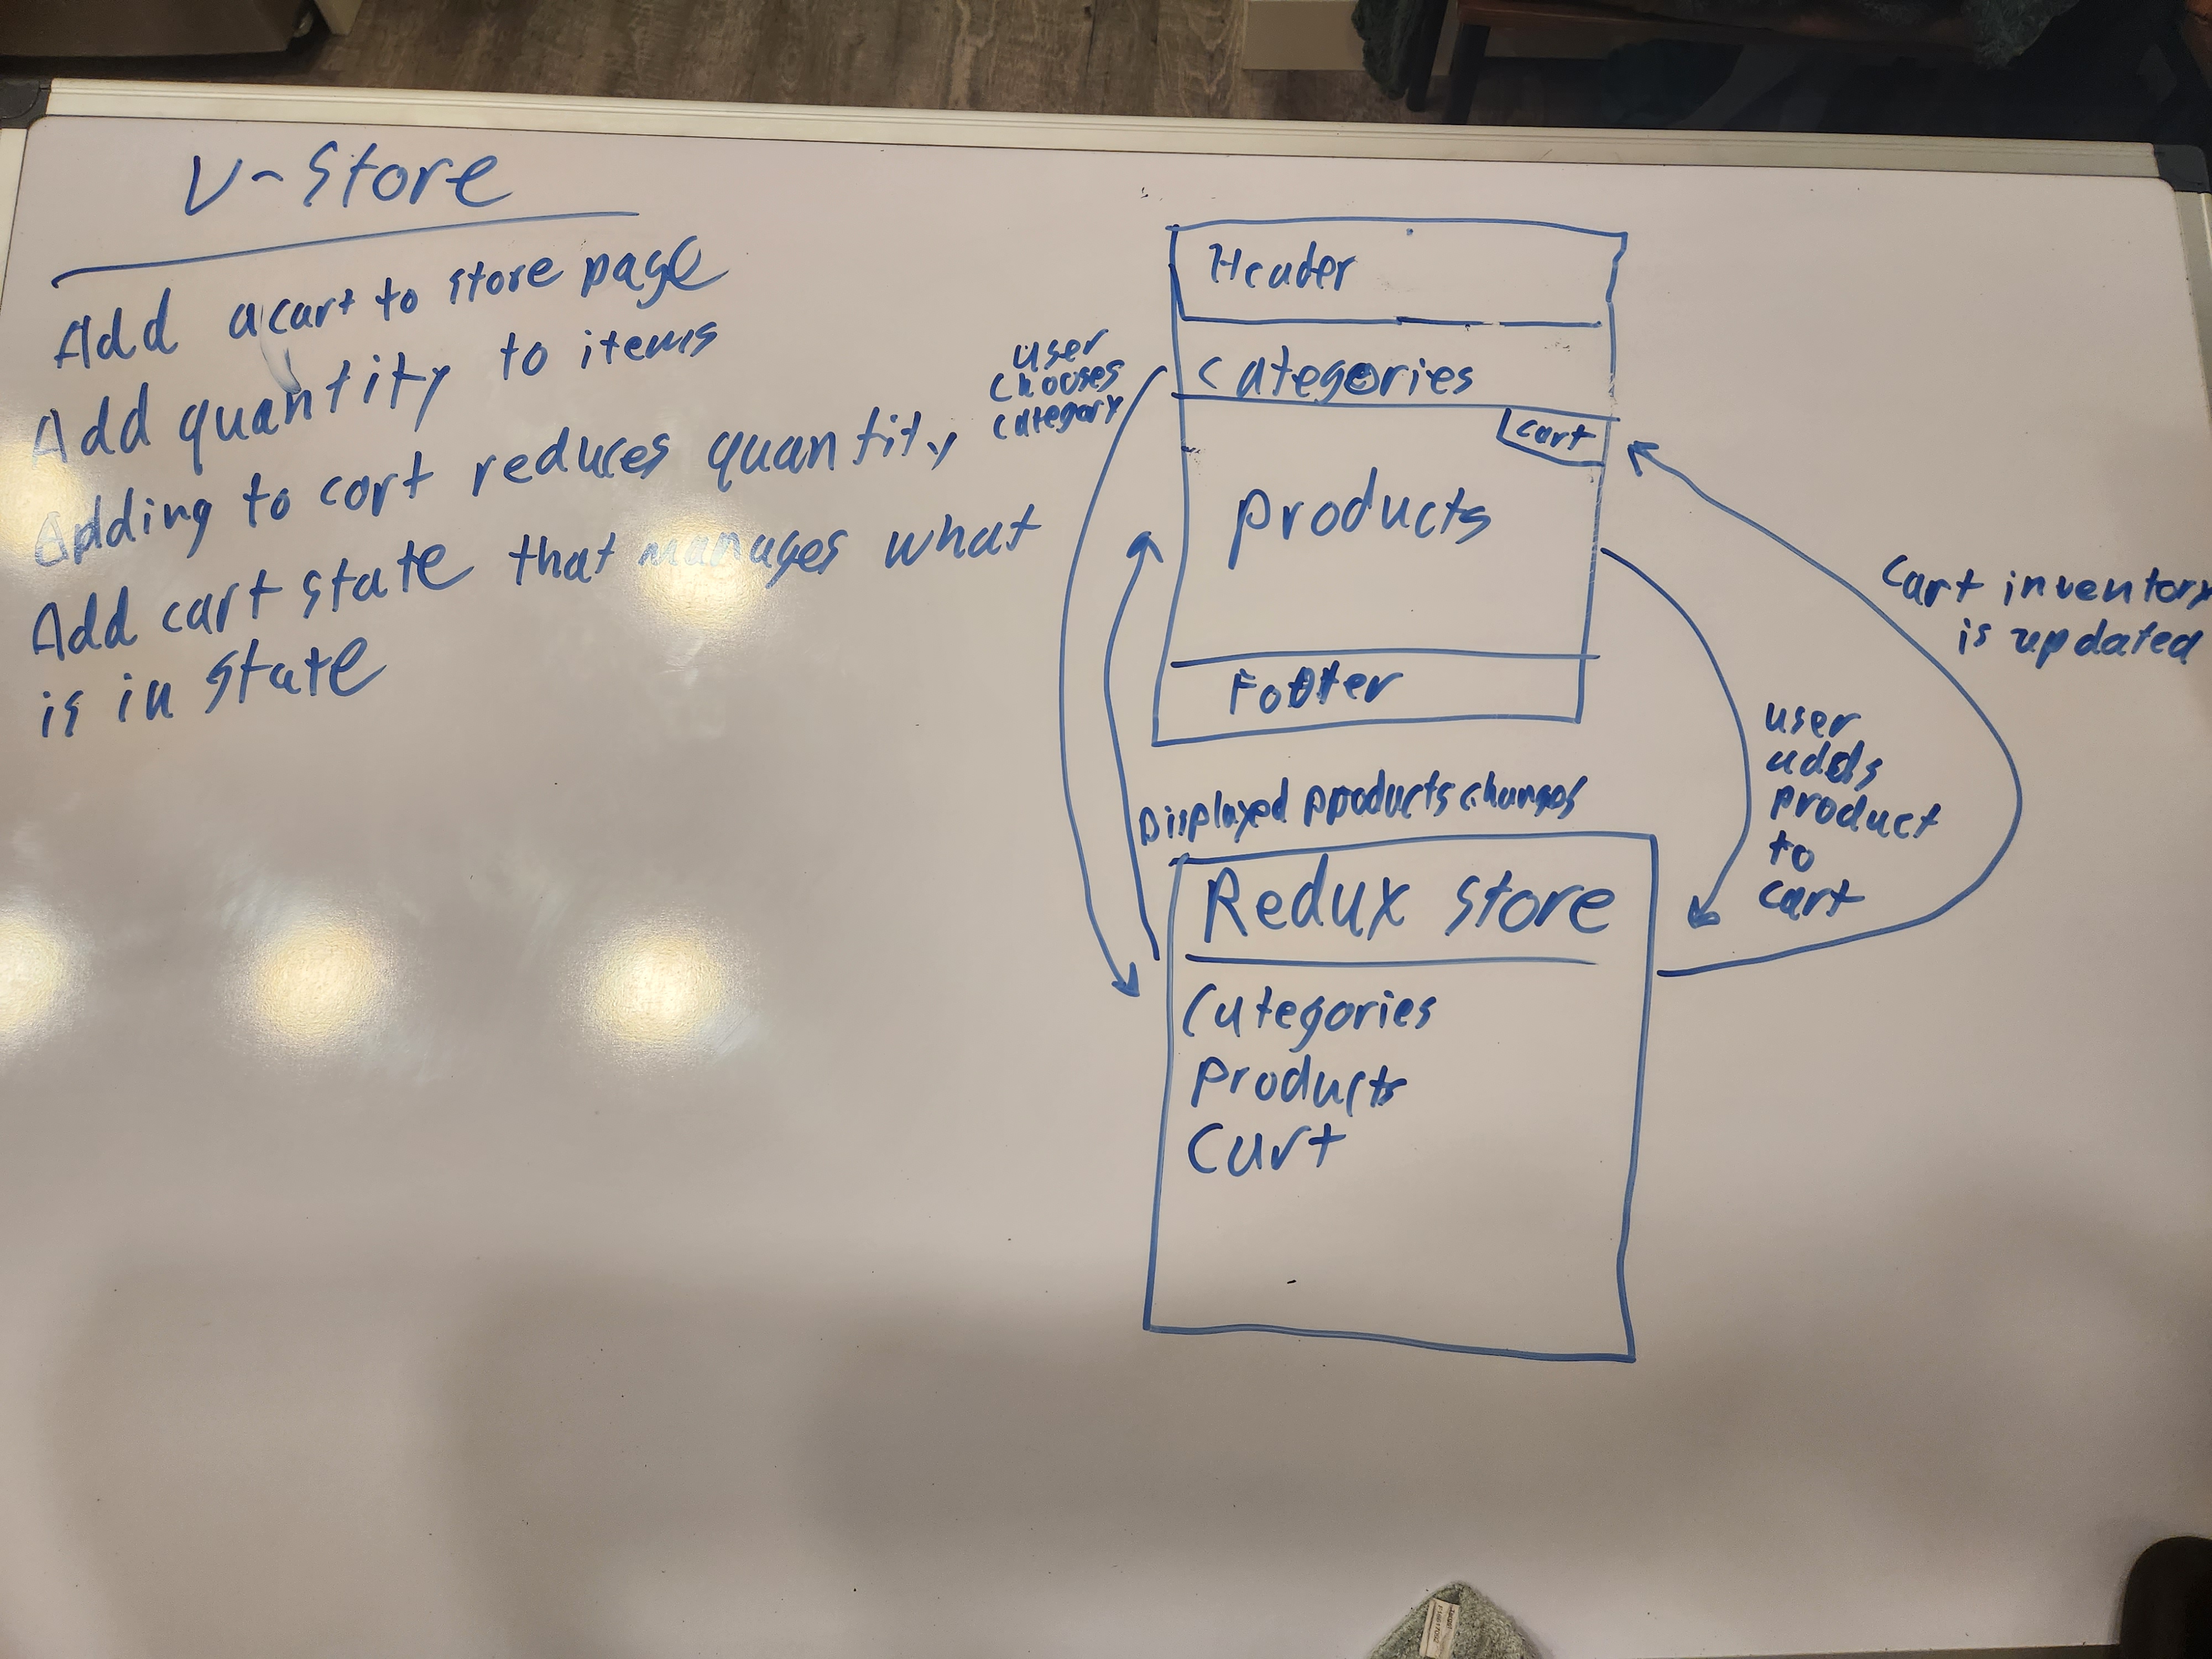 V-Store
Add a cart to store page
Add quantity to items
Adding to cart reduces quantity
Add cart state that manages what
is in state
user
chooses
category
Header
Categories
cart
products
Footer
Displayed products changes
Redux Store
Categories
products
Cart
user
adds
product
to
cart
Cart inventory
is updated
Target